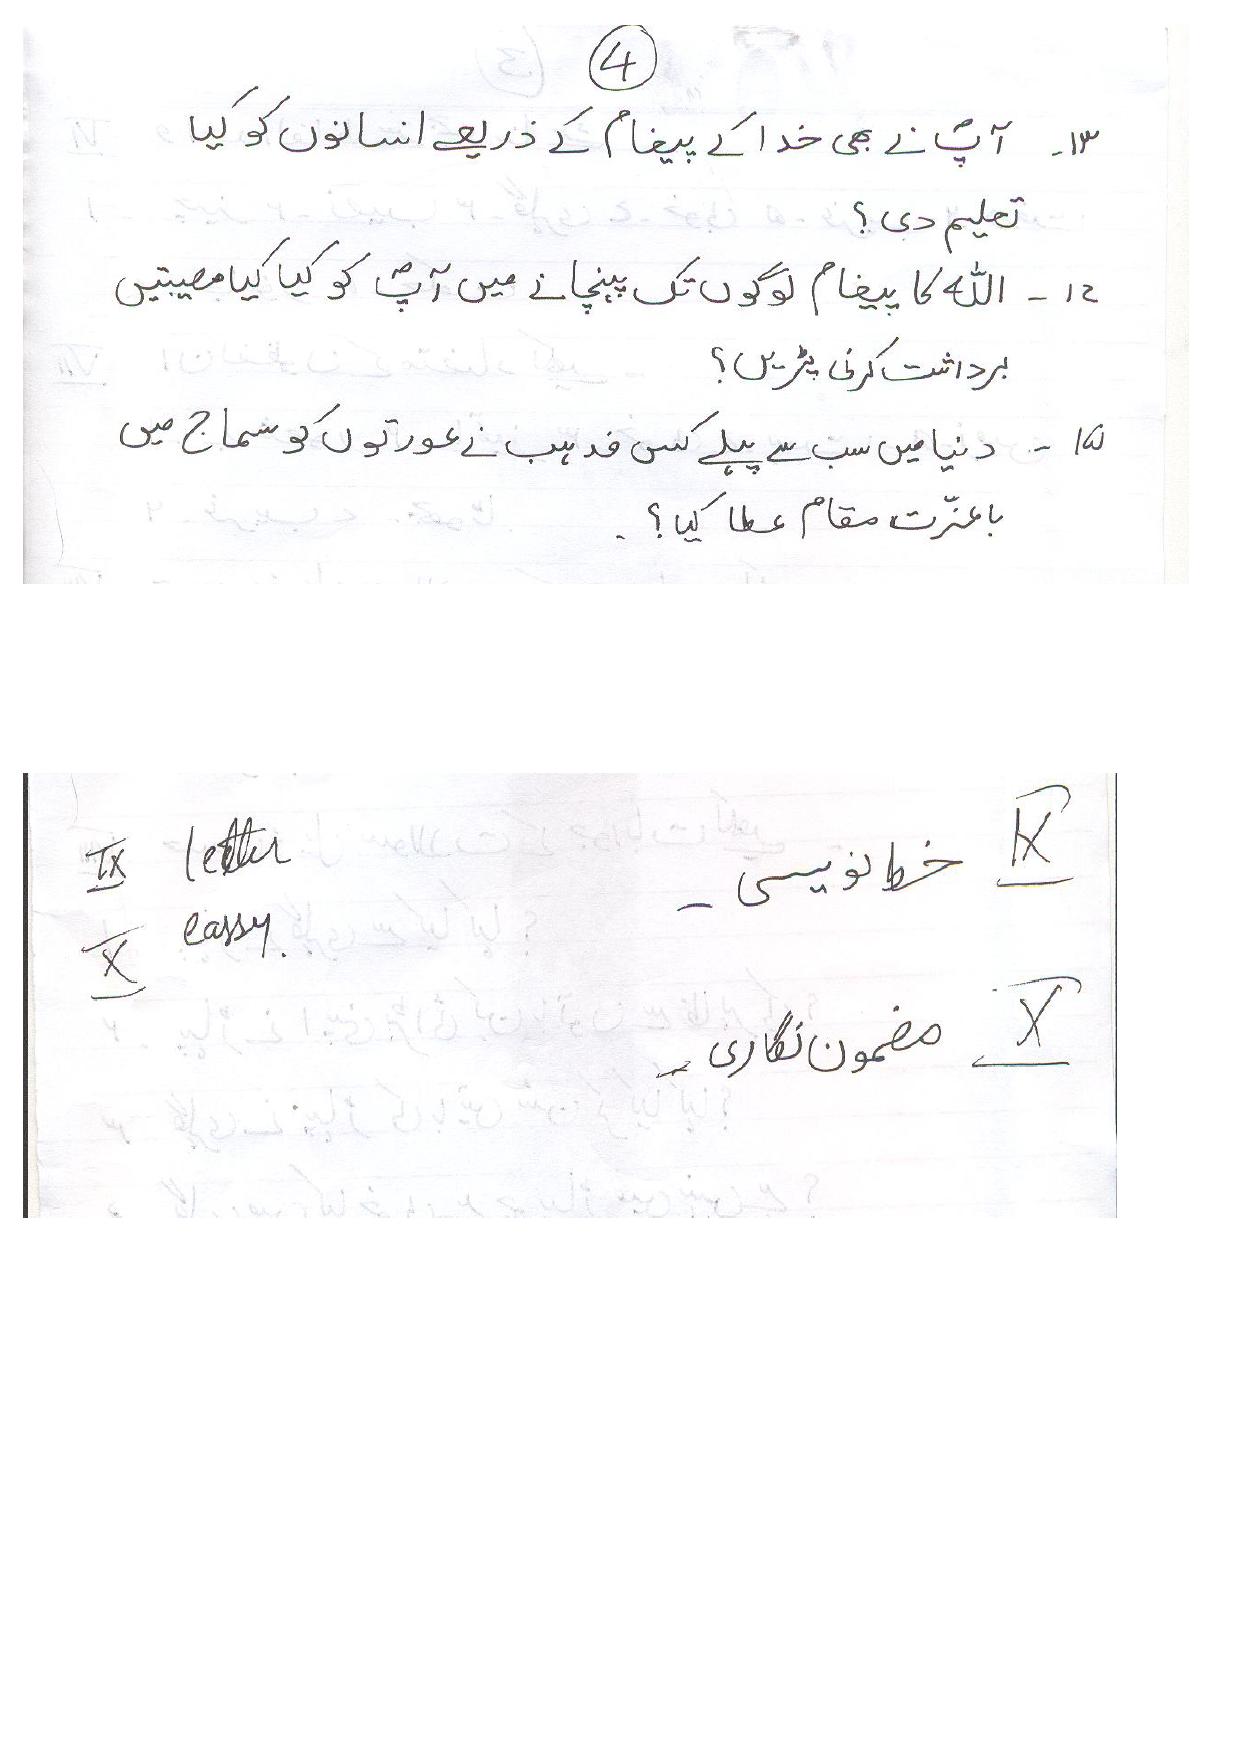 4
۱۳۔ آپؐ نے بھی خدا کے پیغام کے ذریعے انسانوں کو کیا
تعلیم دی ؟
۱۴ ۔ اللہ کا پیغام لوگوں تک پہنچانے میں آپؐ کو کیا کیا مصیبتیں
برداشت کرنی پڑیں؟
۱۵ ۔ دنیا میں سب سے پہلے کس مذہب نے عورتوں کو سماج میں
باعزّت مقام عطا کیا؟
IX خط نویسی ۔
IX letter
X eassy.
X مضمون نگاری ۔